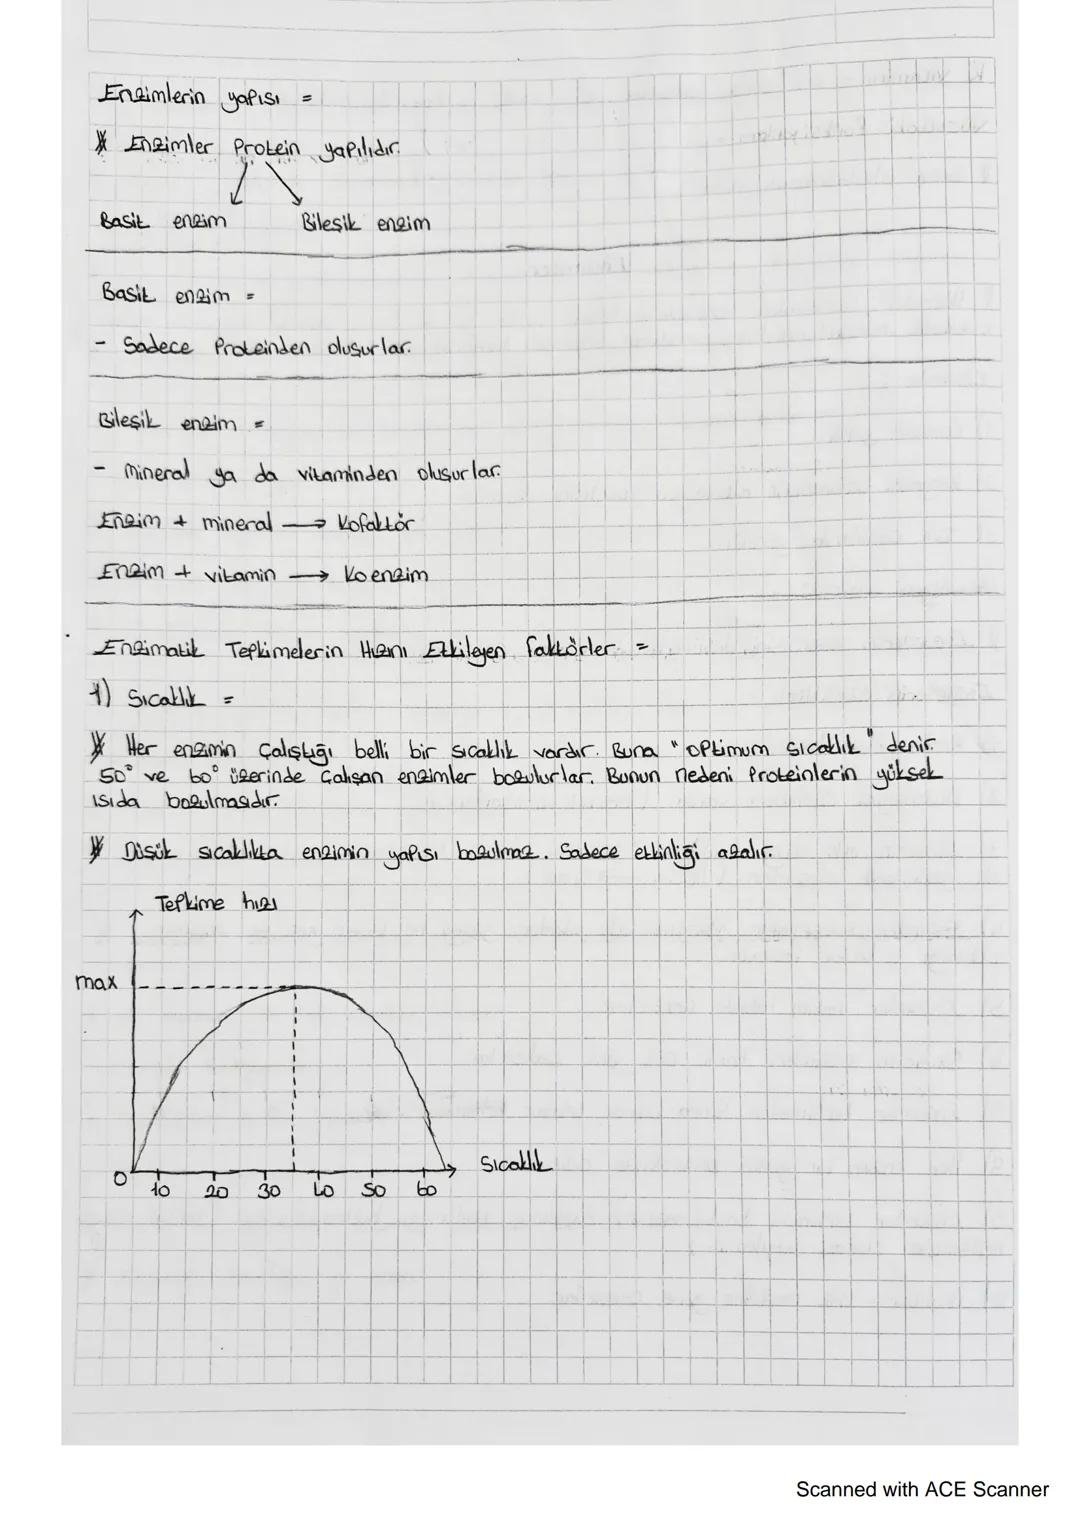 Enzimlerin yapısı =
* Enzimler Protein yapılıdır.
Basit enzim Bileşik enzim
Basit enzim =
- Sadece Proteinden oluşurlar.
Bileşik enzim =
- mineral ya da vitaminden oluşurlar.
Enzim + mineral → Kofaktör
Enzim + vitamin → Koenzim
Enzimatik Tepkimelerin Hızını Etkileyen faktörler =
1) Sıcaklık =
* Her enzimin çalıştığı belli bir sıcaklık vardır. Buna "optimum sıcaklık" denir.
50° ve 60° üzerinde çalışan enzimler bozulurlar. Bunun nedeni Proteinlerin yüksek
ısıda bozulmasıdır.
* Düşük sıcaklıkta enzimin yapısı bozulmaz. Sadece etkinliği azalır.
Tepkime hızı
max
Sıcaklık
0 10 20 30 40 50 60
Scanned with ACE Scanner